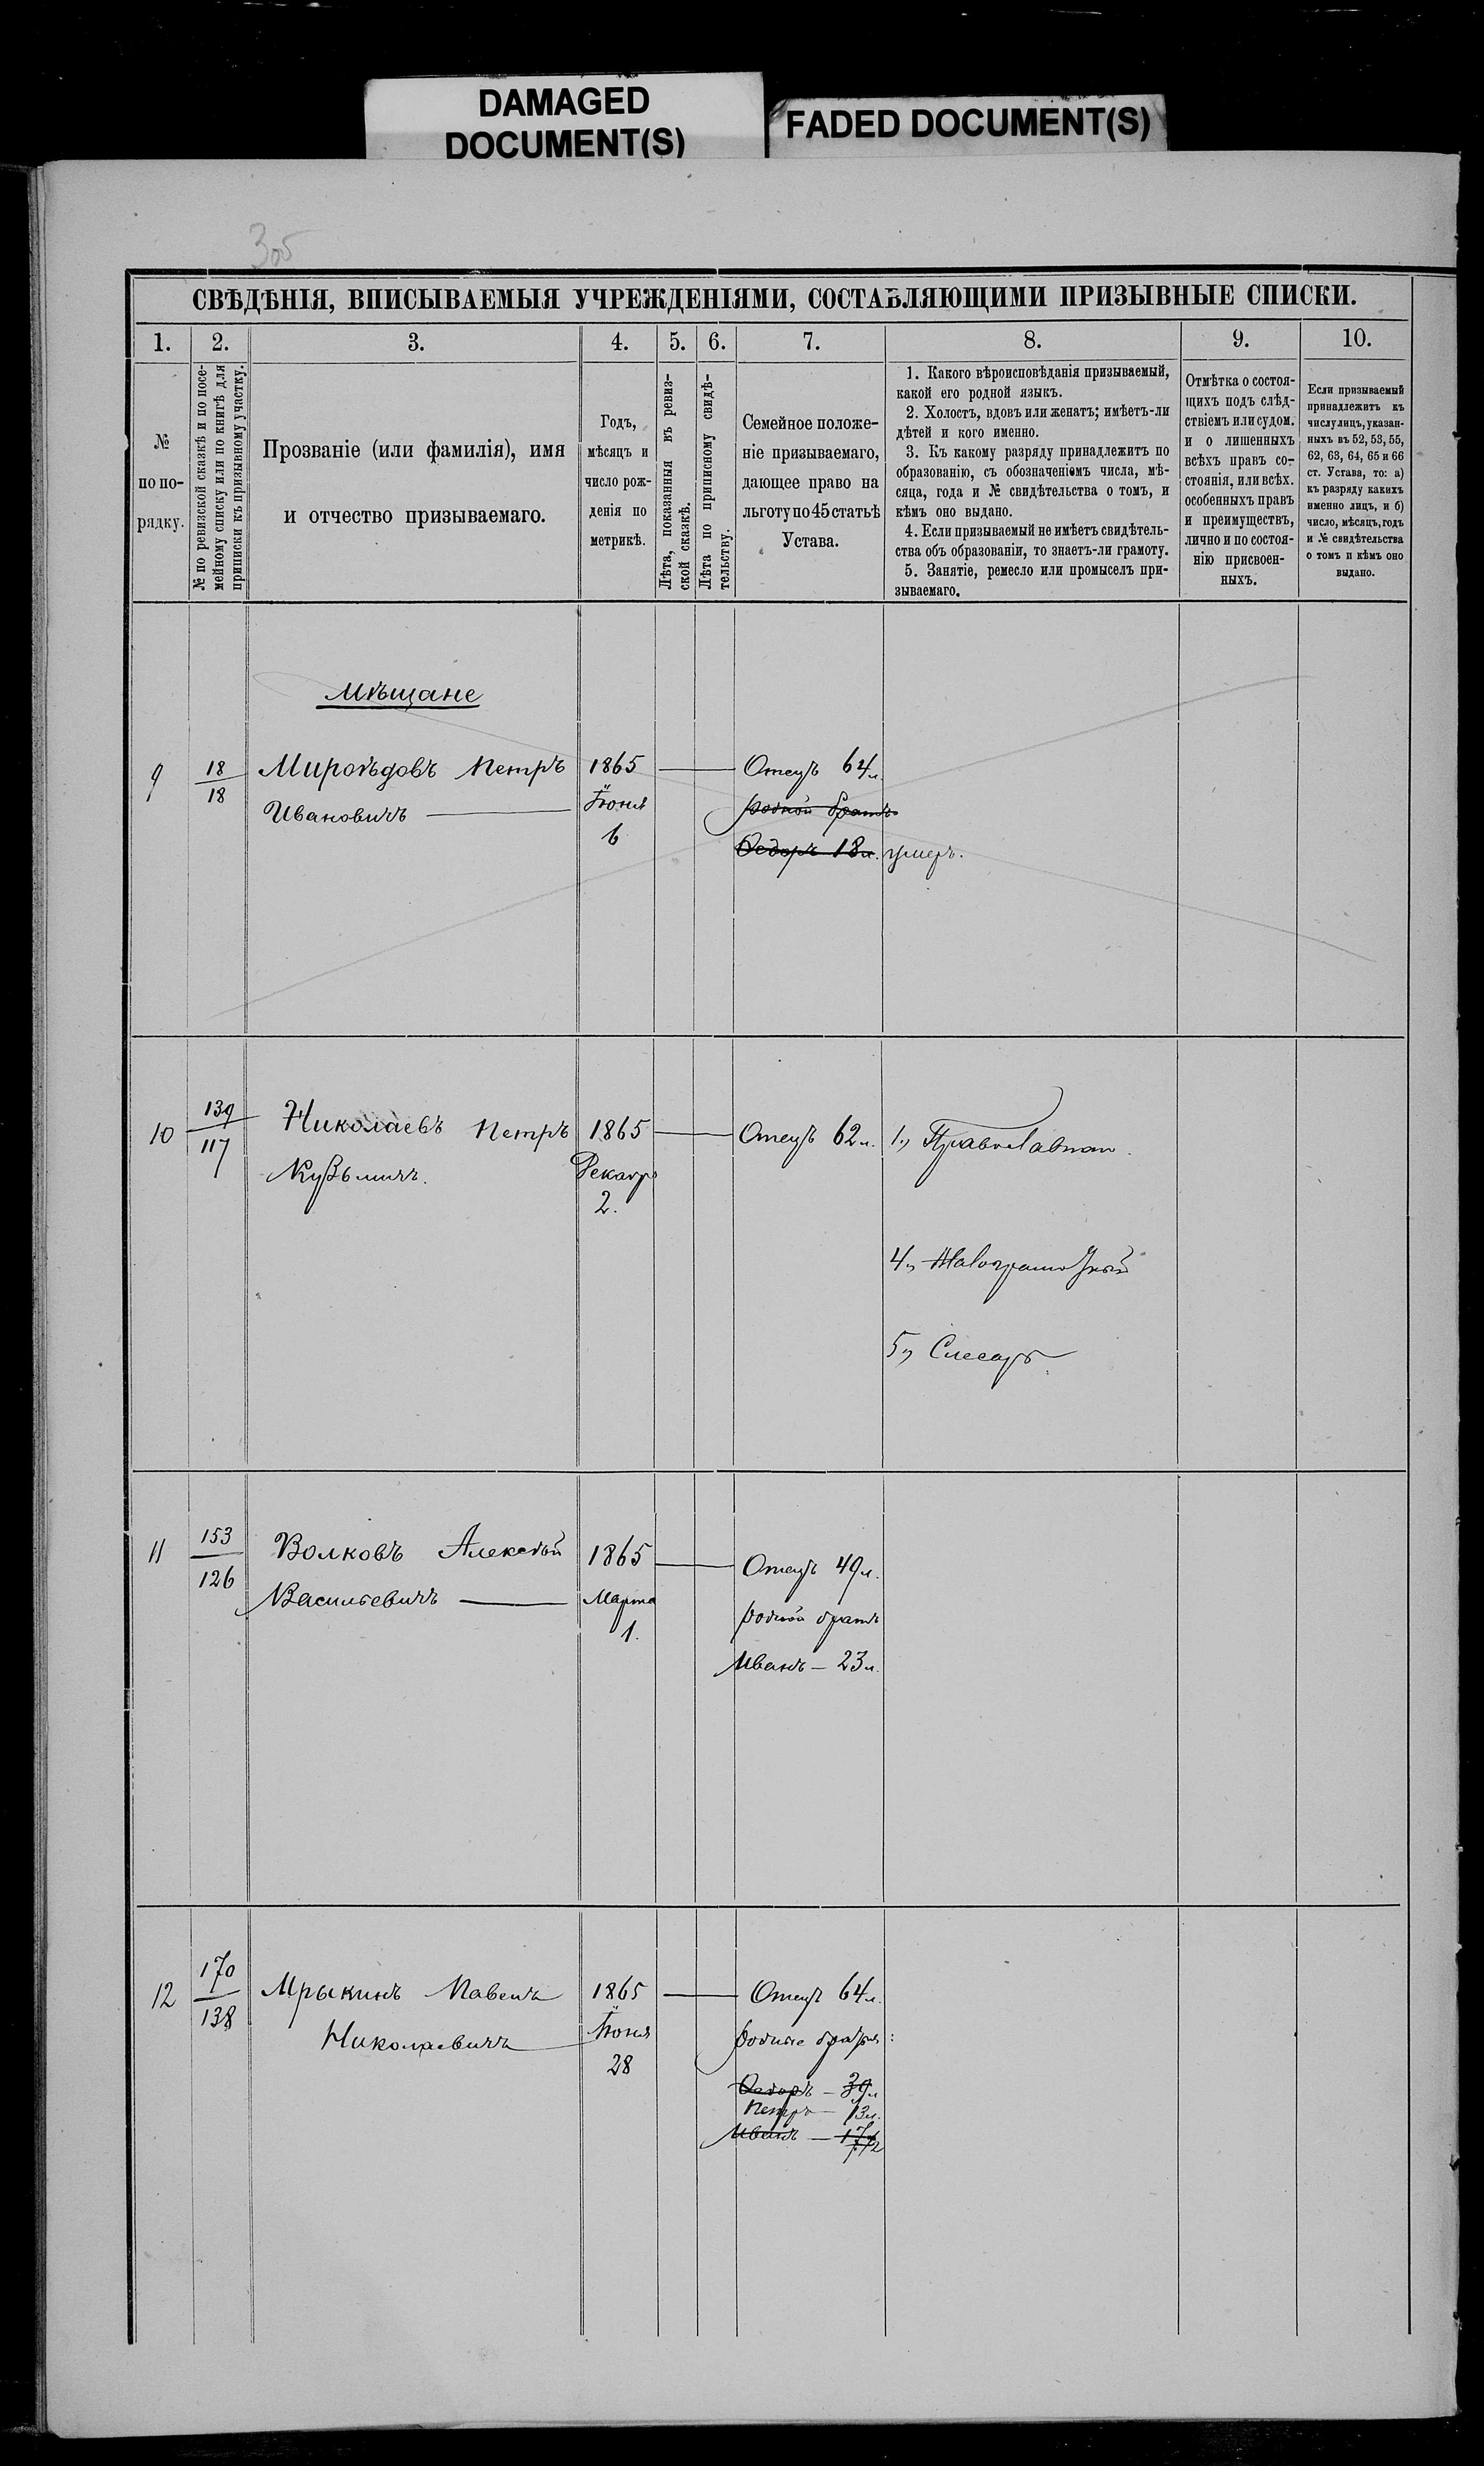 DAMAGED
DOCUMENT(S)
FADED DOCUMENT(S)
305
СВѢДѢНІЯ, ВПИСЫВАЕМЫЯ УЧРЕЖДЕНІЯМИ, СОСТАВЛЯЮЩИМИ ПРИЗЫВНЫЕ СПИСКИ.
1. 2. 3. 4. 5. 6. 7. 8. 9. 10.
№
по по-
рядку.
№ по ревизской сказкѣ и по посе-
мейному списку или по книгѣ для
приписки къ призывному участку.
Прозваніе (или фамилія), имя
и отчество призываемаго.
Годъ,
мѣсяцъ и
число рож-
денія по
метрикѣ.
Лѣта, показанныя въ ревиз-
ской сказкѣ.
Лѣта по приписному свидѣ-
тельству.
Семейное положе-
ніе призываемаго,
дающее право на
льготу по 45 статьѣ
Устава.
1. Какого вѣроисповѣданія призываемый,
какой его родной языкъ.
2. Холостъ, вдовъ или женатъ; имѣетъ-ли
дѣтей и кого именно.
3. Къ какому разряду принадлежитъ по
образованію, съ обозначеніемъ числа, мѣ-
сяца, года и № свидѣтельства о томъ, и
кѣмъ оно выдано.
4. Если призываемый не имѣетъ свидѣтель-
ства объ образованіи, то знаетъ-ли грамоту.
5. Занятіе, ремесло или промыселъ при-
зываемаго.
Отмѣтка о состоя-
щихъ подъ слѣд-
ствіемъ или судомъ.
и о лишенныхъ
всѣхъ правъ со-
стоянія, или всѣхъ.
особенныхъ правъ
и преимуществъ,
лично и по состоя-
нію присвоен-
ныхъ.
Если призываемый
принадлежитъ къ
числу лицъ, указан-
ныхъ въ 52, 53, 55,
62, 63, 64, 65 и 66
ст. Устава, то: а)
къ разряду какихъ
именно лицъ, и б)
число, мѣсяцъ, годъ
и № свидѣтельства
о томъ и кѣмъ оно
выдано.
Мѣщане
9
18
18
Мироѣдовъ Петръ
Ивановичъ
1865
Іюня
6
Отецъ 64 л.
родной братъ
Ѳедоръ 18 л. умеръ.
10
139
117
Николаевъ Петръ
Кузьмичъ.
1865
Декабр
2.
Отецъ 62 л.
1, Православнаго.
4, Малограмотный
5, Слесарь.
11
153
126
Волковъ Алексѣй
Васильевичъ
1865
Марта
1.
Отецъ 49 л.
родной братъ
Иванъ — 23 л.
12
170
138
Мрыкинъ Павелъ
Николаевичъ
1865
Іюня
28
Отецъ 64 л.
родные братья:
Ѳедоръ — 39 л
Петръ — 13 л.
Иванъ — 17 1/2